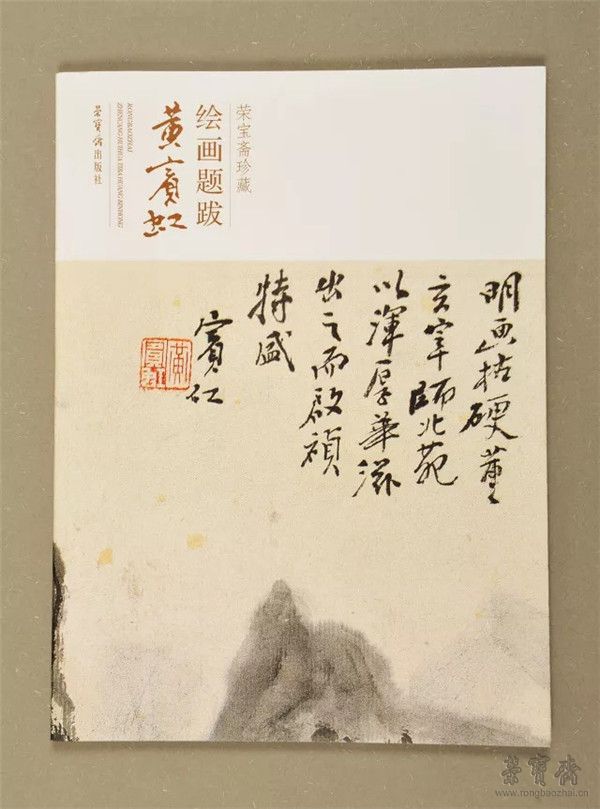 荣宝斋珍藏
绘画题跋
黄宾虹
RONGBAOZHAI
ZHENCANG HUIHUA TIBA HUANG BINHONG
荣宝斋出版社
明画枯硬董
玄宰师北苑
以浑厚华滋
出之而启祯
特盛
宾虹
黄宾虹
荣宝斋
www.rongbaozhai.cn